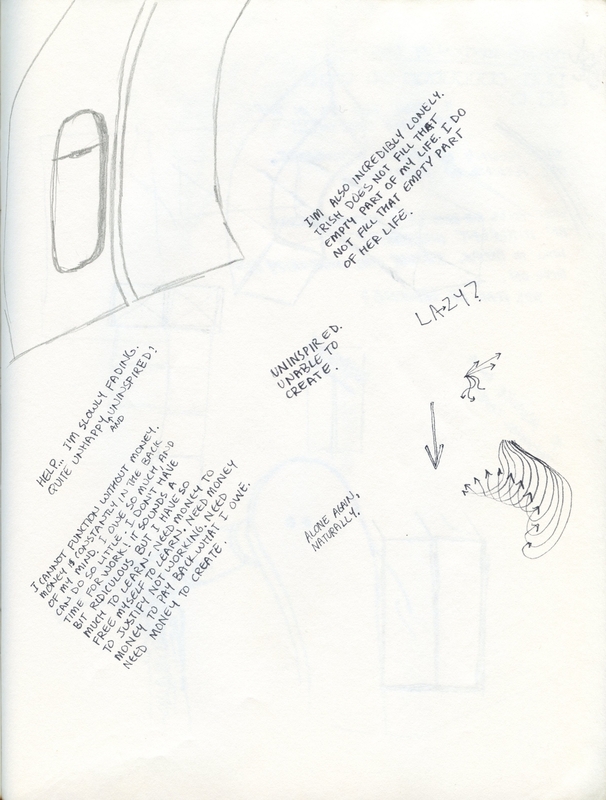 I'M ALSO INCREDIBLY LONELY.
TRISH DOES NOT FILL THAT
EMPTY PART OF MY LIFE. I DO
NOT FILL THAT EMPTY PART
OF HER LIFE.
LAZY?
UNINSPIRED.
UNABLE TO
CREATE.
HELP.. I'M SLOWLY FADING.
QUITE UNHAPPY AND UNINSPIRED!
I CANNOT FUNCTION WITHOUT MONEY.
MONEY IS CONSTANTLY IN THE BACK
OF MY MIND. I OWE SO MUCH AND
CAN DO SO LITTLE. I DON'T HAVE
TIME FOR WORK! IT SOUNDS A
BIT RIDICULOUS BUT I HAVE SO
MUCH TO LEARN - NEED MONEY TO
FREE MYSELF TO LEARN. NEED MONEY
TO JUSTIFY NOT WORKING. NEED
MONEY TO PAY BACK WHAT I OWE.
NEED MONEY TO CREATE.
ALONE AGAIN,
NATURALLY.